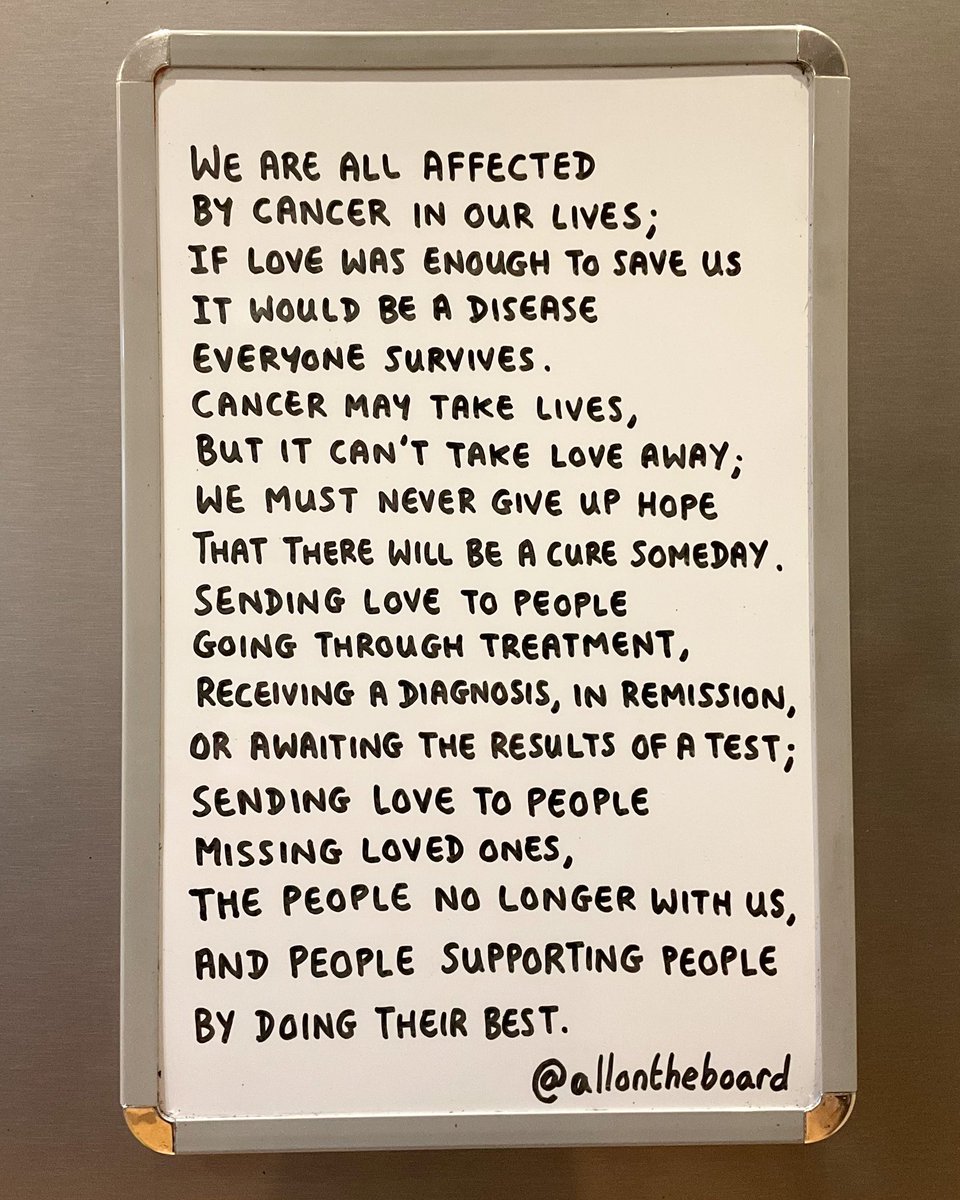 WE ARE ALL AFFECTED
BY CANCER IN OUR LIVES;
IF LOVE WAS ENOUGH TO SAVE US
IT WOULD BE A DISEASE
EVERYONE SURVIVES.
CANCER MAY TAKE LIVES,
BUT IT CAN'T TAKE LOVE AWAY;
WE MUST NEVER GIVE UP HOPE
THAT THERE WILL BE A CURE SOMEDAY.
SENDING LOVE TO PEOPLE
GOING THROUGH TREATMENT,
RECEIVING A DIAGNOSIS, IN REMISSION,
OR AWAITING THE RESULTS OF A TEST;
SENDING LOVE TO PEOPLE
MISSING LOVED ONES,
THE PEOPLE NO LONGER WITH US,
AND PEOPLE SUPPORTING PEOPLE
BY DOING THEIR BEST.
@allontheboard